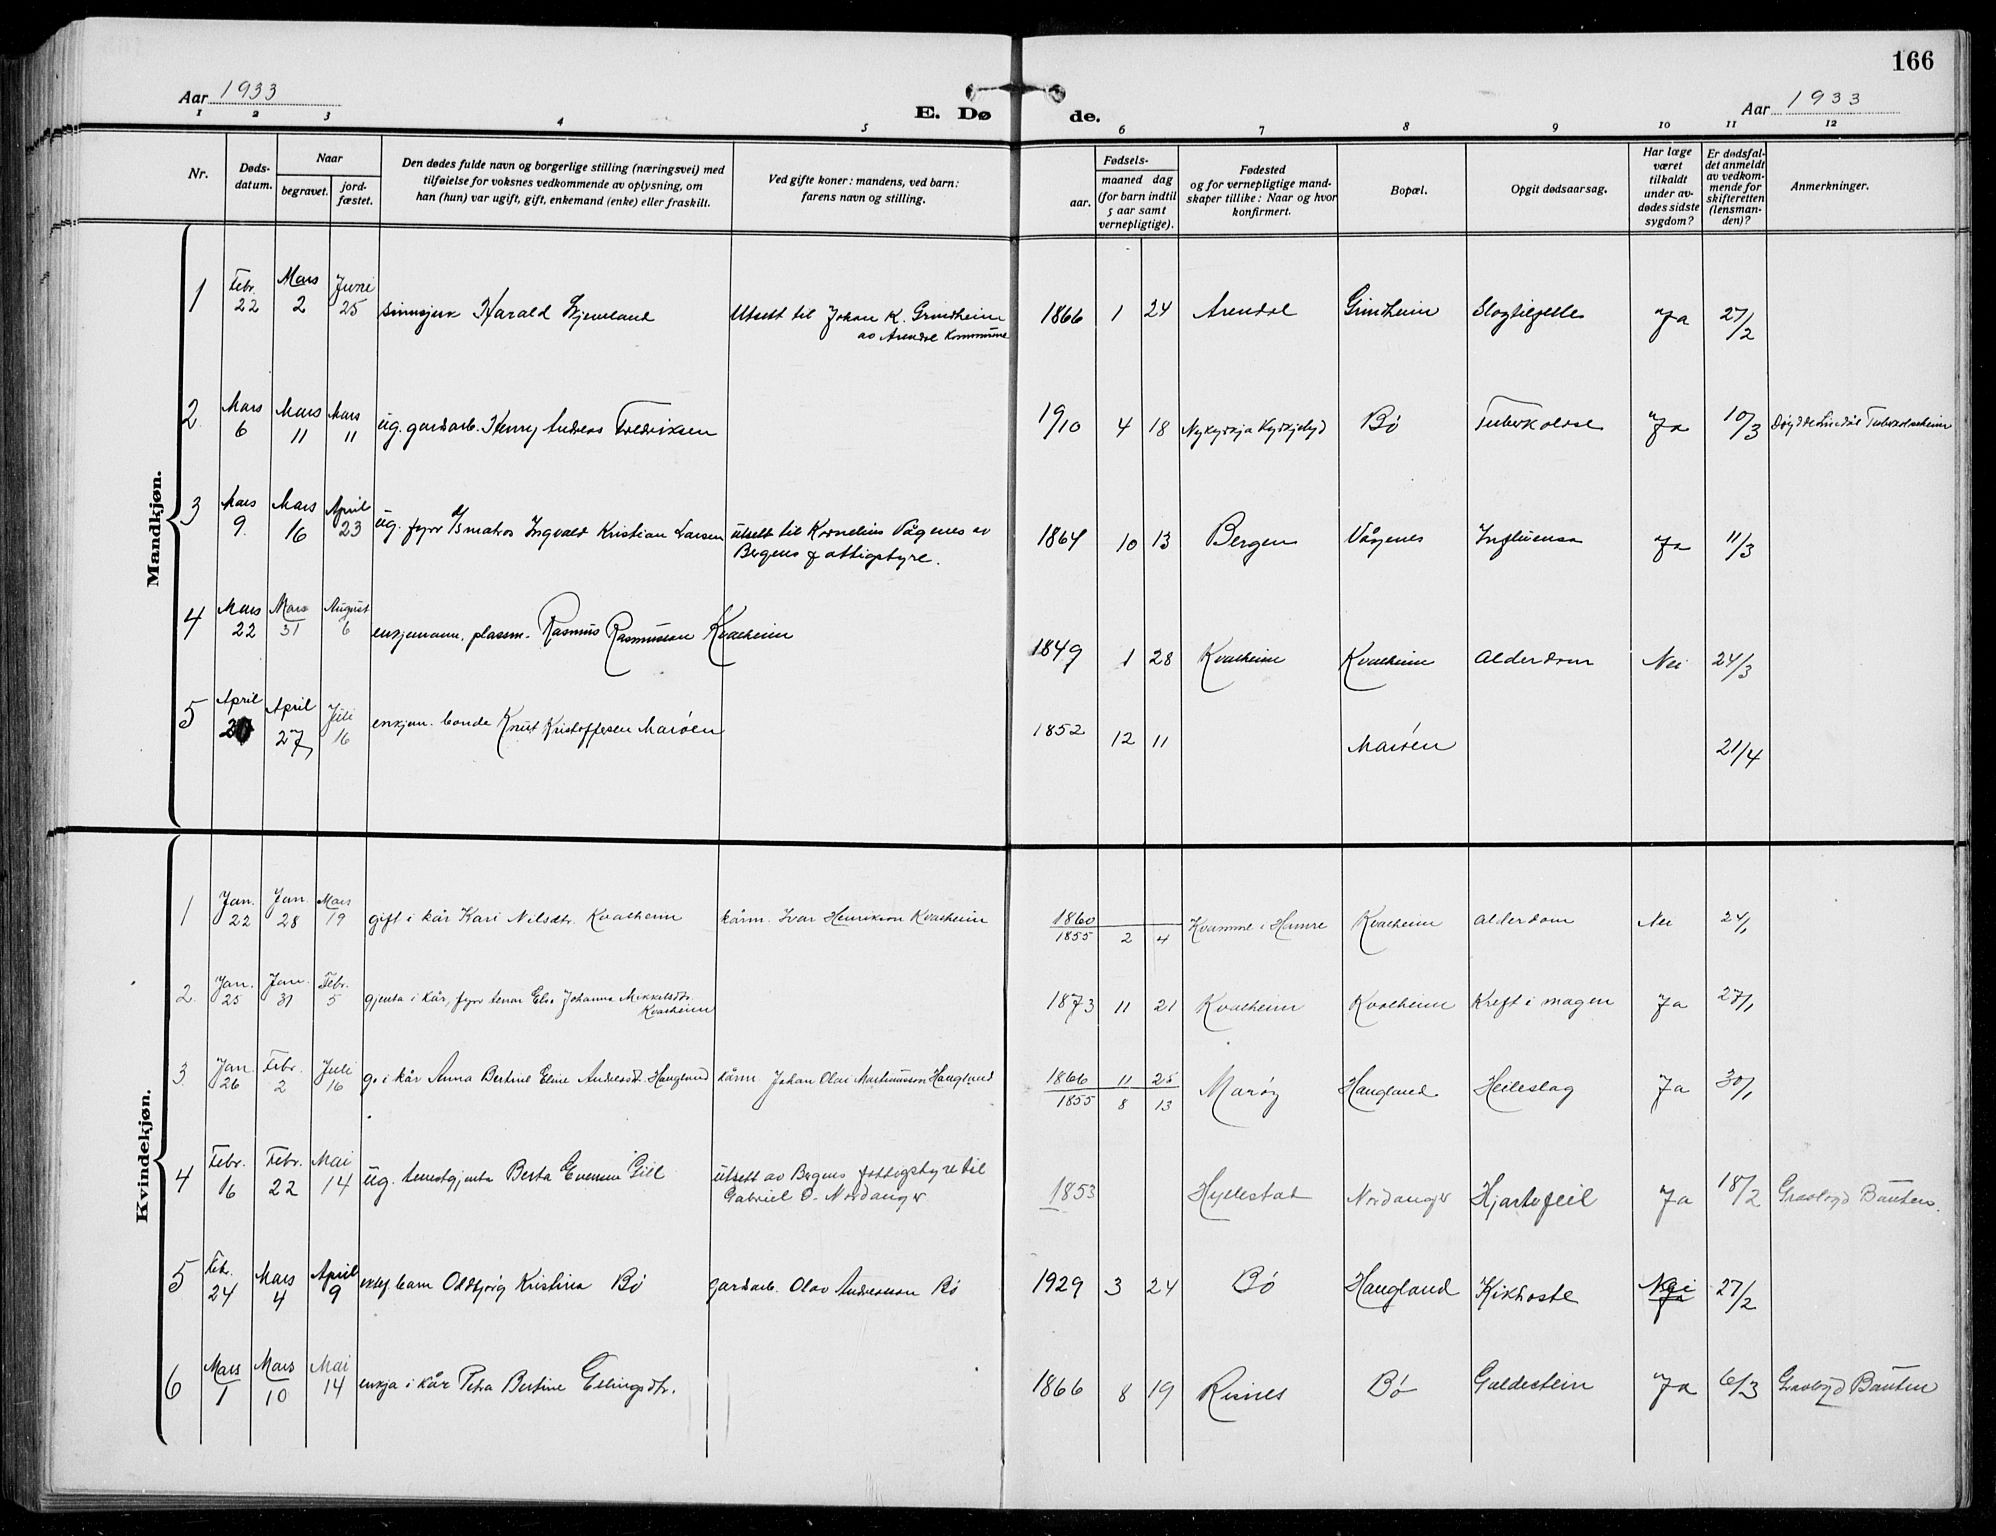 166
Aar 1933
E. Døde.
Aar 1933
1 2 3 4 5 6 7 8 9 10 11 12
Nr.
Døds-datum.
Naar
begravet.
jord-fæstet.
Den dødes fulde navn og borgerlige stilling (næringsvei) med
tilføielse for voksnes vedkommende av oplysning, om
han (hun) var ugift, gift, enkemand (enke) eller fraskilt.
Ved gifte koner: mandens, ved barn:
farens navn og stilling.
Fødsels-
aar.
maaned dag
(for barn indtil
5 aar samt
vernepligtige).
Fødested
og for vernepligtige mand-
skaper tillike: Naar og hvor
konfirmert.
Bopæl.
Opgit dødsaarsag.
Har læge
været
tilkaldt
under av-
dødes sidste
sygdom?
Er dødsfal-
det anmeldt
av vedkom-
mende for
skifteretten
(lensman-
den)?
Anmerkninger.
Mandkjøn.
1 Febr. 22 Mars 2 Juni 25 sinnsjuk Harald utsett til Johan K. Grindheim av Arendal kommune 1866 1 24 Arendal Grindheim Slagtilfelle Ja 27/2
2 Mars 6 Mars 11 Mars 11 ug. gardarb. Henry Andreas Fredriksen 1910 4 18 Nykyrkja Kyrkjebyd Bø Tuberkolose Ja 10/3 Tuberkoloseheim
3 Mars 9 Mars 16 April 23 ug. fyrr matros Ingvald Kristian Larsen utsett til Kornelius Vågenes av
Bergens fattigstyre. 1864 10 13 Bergen Vågenes Influensa Ja 11/3
4 Mars 22 Mars 31 August 6 enkjemann, plassm. Rasmus Rasmusson Kvalheim 1849 1 28 Kvalheim Kvalheim Alderdom Nei 24/3
5 April 20 April 27 Juli 16 enkjem. bonde Knut Kristoffersen Marøen 1852 12 11 Marøen 21/4
Kvindekjøn.
1 Jan. 22 Jan. 28 Mars 19 gift i kår Kari Nilsdtr. Kvalheim kårm. Ivar Henrikson Kvalheim 1860 1855 2 4 Kvamme i Hamre Kvalheim Alderdom Nei 24/1
2 Jan. 25 Jan. 31 Febr. 5 gjenta i kår, fyrr tenar Elsa Johanna Mikkelsdtr.
Kvalheim 1873 11 21 Kvalheim Kvalheim Kreft i magen Ja 27/1
3 Jan. 26 Febr. 2 Juli 16 g. i kår Anna Bertine Eline Andersdt. Haugland kårm. Johan Olai Martinusson Haugland 1866 11 25 1855 8 13 Marøy Haugland Heileslag Ja 30/1
4 Febr. 16 Febr. 22 Mai 14 ug. tenestgjenta Berta Gill utsett av Bergens fattigstyre til
Gabriel O. Nordanger 1853 Hjelestad Nordanger Hjartefeil Ja 18/2 Gravlagd Bauten.
5 Febr. 24 Mars 4 April 9 barn Oddbjørg Kristina Bø gardarb. Olav Andreasson Bø 1929 3 24 Bø Haugland Kikhoste Nei 27/2
6 Mars 1 Mars 10 Mai 14 enkja i kår Petra Bertine Ellingsdtr. 1866 8 19 Risnes Bø Galdestein Ja 6/3 Gravlagd Bauten